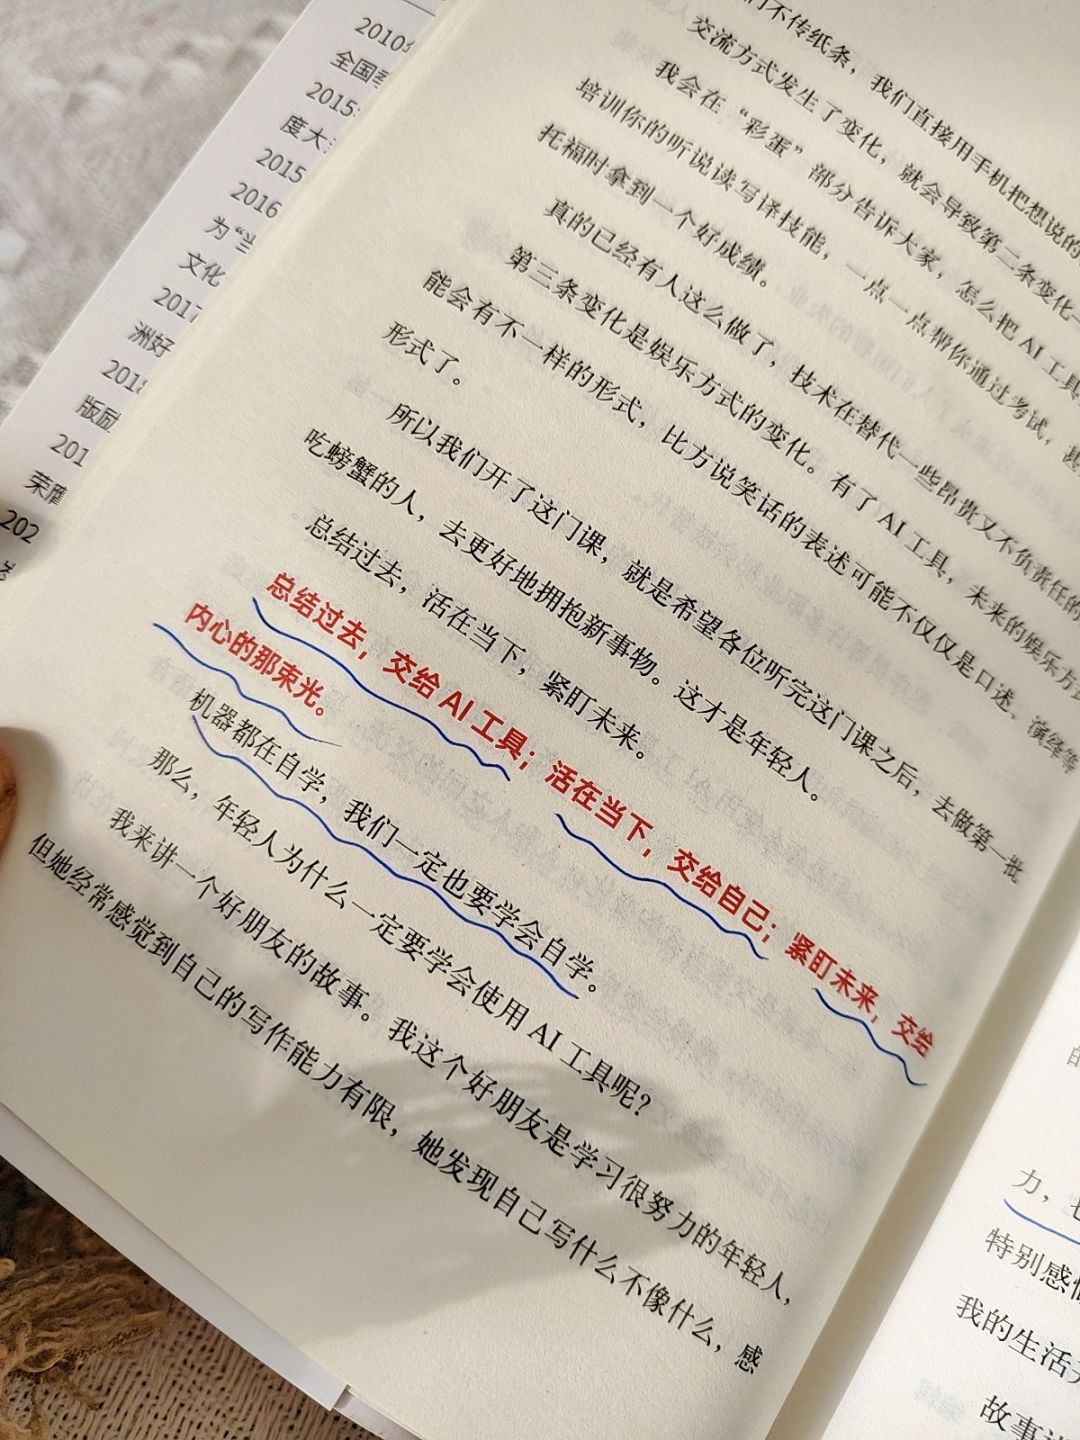 2010
全国
2015
度大
2015
2016
为“当
文化
2017
洲好
2018
版励
201
荣膺
202
们不传纸条，我们直接用手机把想说的
交流方式发生了变化，就会导致第二条变化
我会在“彩蛋”部分告诉大家，怎么把 AI 工具
培训你的听说读写译技能，一点一点帮你通过考试，甚
托福时拿到一个好成绩。
真的已经有人这么做了，技术在替代一些昂贵又不负责任的
第三条变化是娱乐方式的变化。有了 AI 工具，未来的娱乐方式
能会有不一样的形式，比方说笑话的表述可能不仅仅是口述、演绎等
形式了。
所以我们开了这门课，就是希望各位听完这门课之后，去做第一批
吃螃蟹的人，去更好地拥抱新事物。这才是年轻人。
总结过去，活在当下，紧盯未来。
总结过去，交给 AI 工具；活在当下，交给自己；紧盯未来，交给
内心的那束光。
机器都在自学，我们一定也要学会自学。
那么，年轻人为什么一定要学会使用 AI 工具呢？
我来讲一个好朋友的故事。我这个好朋友是学习很努力的年轻人，
但她经常感觉到自己的写作能力有限，她发现自己写什么不像什么，感
力，
特别感
我的生活
故事